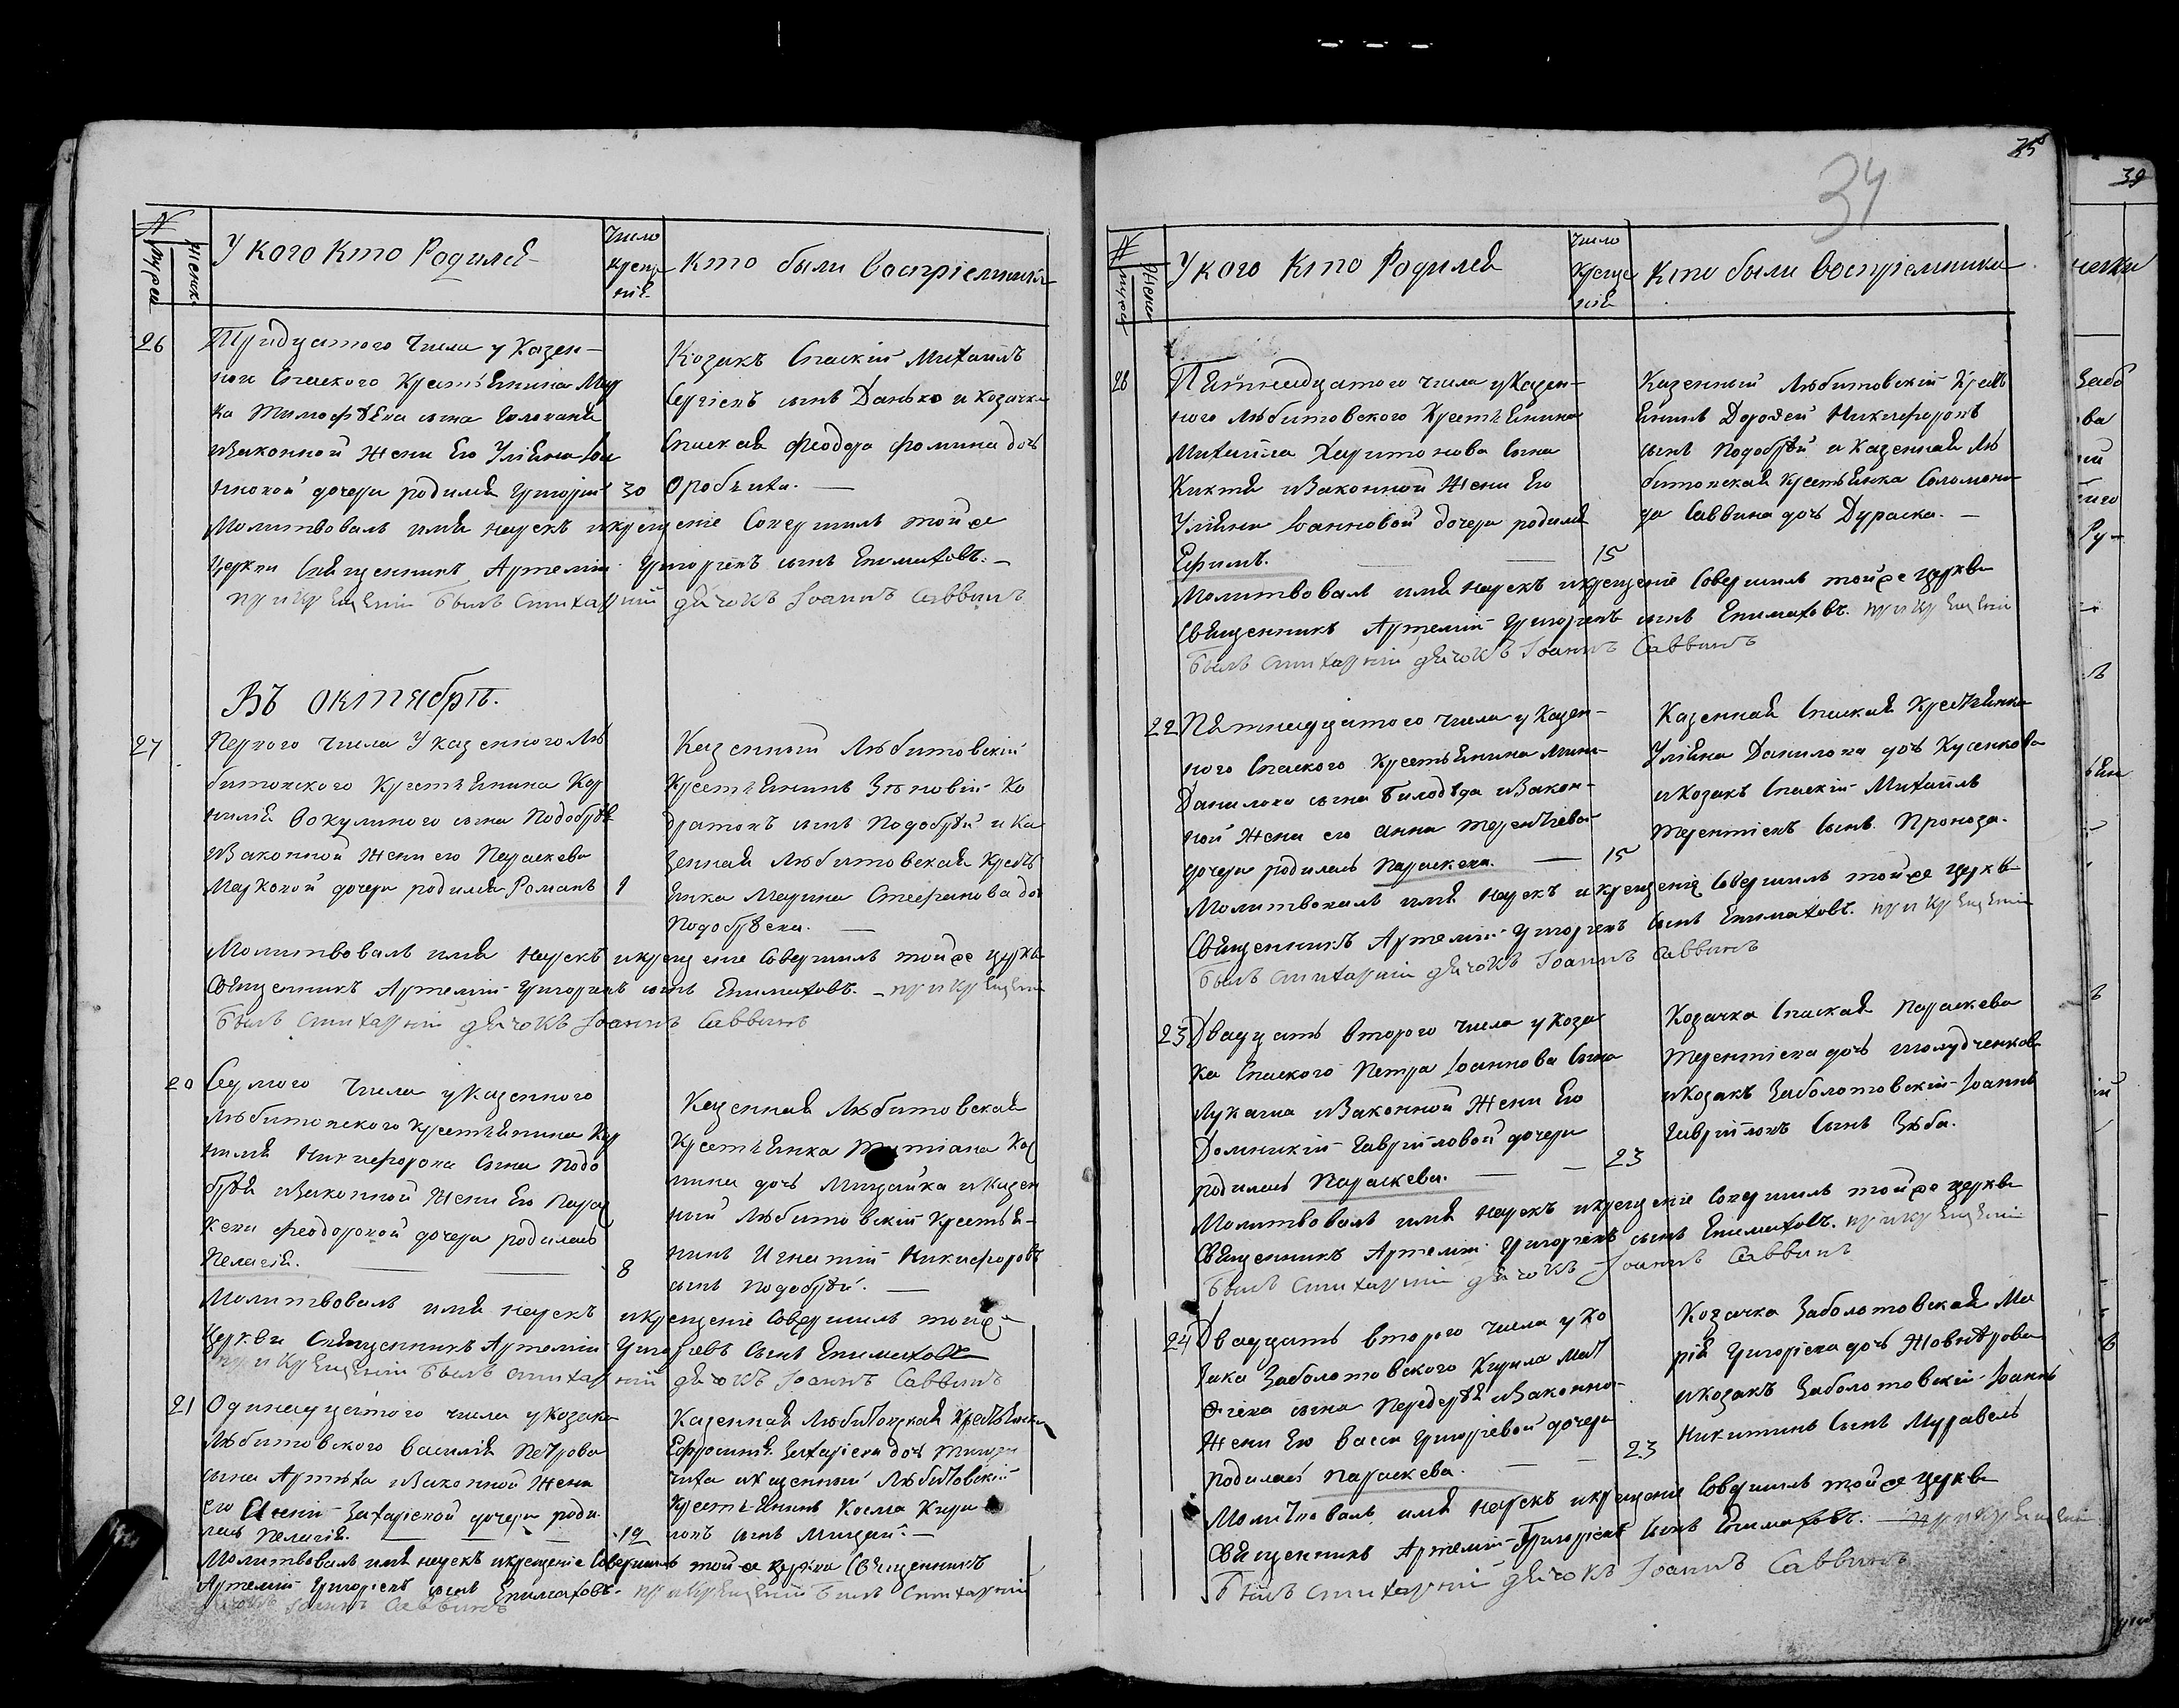 N
Мужеи
Женик.
У кого кто Родился
Число
крещ
нія
кто были воспріемники
26
Тридцатого числа у казен-
ного Спаского Крестьянина Мар
ка Тимофѣева сына Голована
изаконной жены Его Уліяна Іоа
нновой дочери родился Григорій
30
Козакъ Спаскій Михаилъ
Сергіевъ сынъ Данько и козачка
Спаская Феодора Фомина дочъ
Оробьиха.
Молитвовалъ имя нарекъ икрещеніе Совершилъ тойже
Церкви Священникъ Артемій Григоріевъ сынъ Епимаховъ.
при крещеніи былъ стихарній дячокъ Іоаннъ Саввинъ
Въ октябрѣ.
27
Первого числа У казенного Лю
битовского Крестьянина Кор
нилія Вокулиного сына Подобрѣя
изаконной жены его Параскева
Марковой дочери родился Романъ
1
Казенный Любитовскій
Крестьянинъ Зѣновій Ко
дратовъ сынъ Подобрѣй и ка
зенная Любитовская Кресть
янка Марина Стефанова доч
Подобрѣева.
Молитвовалъ имя нарекъ икрещеніе Совершилъ тойже церкви
Священникъ Артемій Григоріевъ сынъ Епимаховъ. при крещеніи
былъ стихарній дячокъ Іоаннъ Саввинъ
20
Седмого числа у казенного
Любитовского крестьянина Кор
нилія Никифорова сына Подо
брѣя изаконной жены Его Парас
кевы Феодоровой дочери родилась
Пелагія.
8
Казенная Любитовская
Крестьянка Татіана Кос
мина дочъ Мицайка и казен
ный Любитовскій Крестья-
нинъ Игнатій Никифоровъ
сынъ Подобрѣй.
Молитвовалъ имя нарекъ икрещеніе Совершилъ тойже
Церкви Священникъ Артемій Григоріевъ сынъ Епимаховъ
при крещеніи былъ стихарній дячокъ Іоаннъ Саввинъ
21
Одинадцатого числа у козака
Любитовского Василія Петрова
сына Артюха изаконной жены
его Евгеніи Захаріевой дочери роди
лась Пелагія.
12
Казенная Любитовская Крестьянка
Ефросинія Захаріева дочъ
чиха и казенный Любитовскій
Крестьянинъ Косма Кири
ловъ сынъ Мицай.
Молитвовалъ имя нарекъ икрещеніе Совершилъ тойже церкви Священникъ
Артемій Григоріевъ сынъ Епимаховъ. при крещеніи былъ Стихарній
дячокъ Іоаннъ Саввинъ
34
N
Мужеи
Жени
У кого кто Родился
Число
креще
нія
Кто были воспріемники
28
Пятнадцатого числа у казен-
ного Любитовского Крестьянина
Михаила Харитонова сына
Киктя изаконной жены Его
Уліяни Іоанновой дочери родился
Ефимъ.
15
Казенный Любитовскій Кресть
янинъ Дорофей Никифоровъ
сынъ Подобрѣй и казенная Лю
битовская крестьянка Соломони
да Саввина дочъ Дураска.
Молитвовалъ имя нарекъ икрещеніе Совершилъ тойже церкви
Священникъ Артемій Григоріевъ сынъ Епимаховъ. при крещеніи
былъ стихарній дячокъ Іоаннъ Саввинъ
22
Пятнадцатого числа у казен-
ного Спаского Крестьянина Мини
Данилова сына Билодѣда изакон-
ной жены его Анна Терентіева
дочери родилась Параскева.
15
Казенная Спаская Крестьянка
Уліяна Данилова дочъ Кусенкова
икозакъ Спаскій Михаилъ
Терентіевъ сынъ Проноза.
Молитвовалъ имя нарекъ икрещеніе Совершилъ тойже церкви
Священникъ Артемій Григоріевъ сынъ Епимаховъ. при крещеніи
былъ стихарній дячокъ Іоаннъ Саввинъ
23
Двадцать второго числа у коза
ка Спаского Петра Іоаннова сына
Лукаша изаконной жены Его
Домникіи Гавріиловой дочери
родилась Параскева.
23
Козачка Спаская Параскева
Терентіева дочъ
икозакъ Заболотовскій Іоаннъ
Гавріиловъ сынъ Зюба.
Молитвовалъ имя нарекъ икрещеніе Совершилъ тойже церкви
Священникъ Артемій Григоріевъ сынъ Епимаховъ. при крещеніи
былъ стихарній дячокъ Іоаннъ Саввинъ
24
Двадцать второго числа у ко
зака Заболотовского Кирила Мат
ѳѣева сына Передерѣя изаконно
жены Его Васса Григоріевой дочери
родилась Параскева.
23
Козачка Заболотовская Ма
рія Григоріева дочъ Жовнѣрова
икозакъ Заболотовскій Іоаннъ
Никитинъ сынъ Муравель
Молитвовалъ имя нарекъ икрещеніе Совершилъ тойже церкви
Священникъ Артемій Григоріевъ сынъ Епимаховъ. при крещеніи
былъ стихарній дячокъ Іоаннъ Саввинъ
39